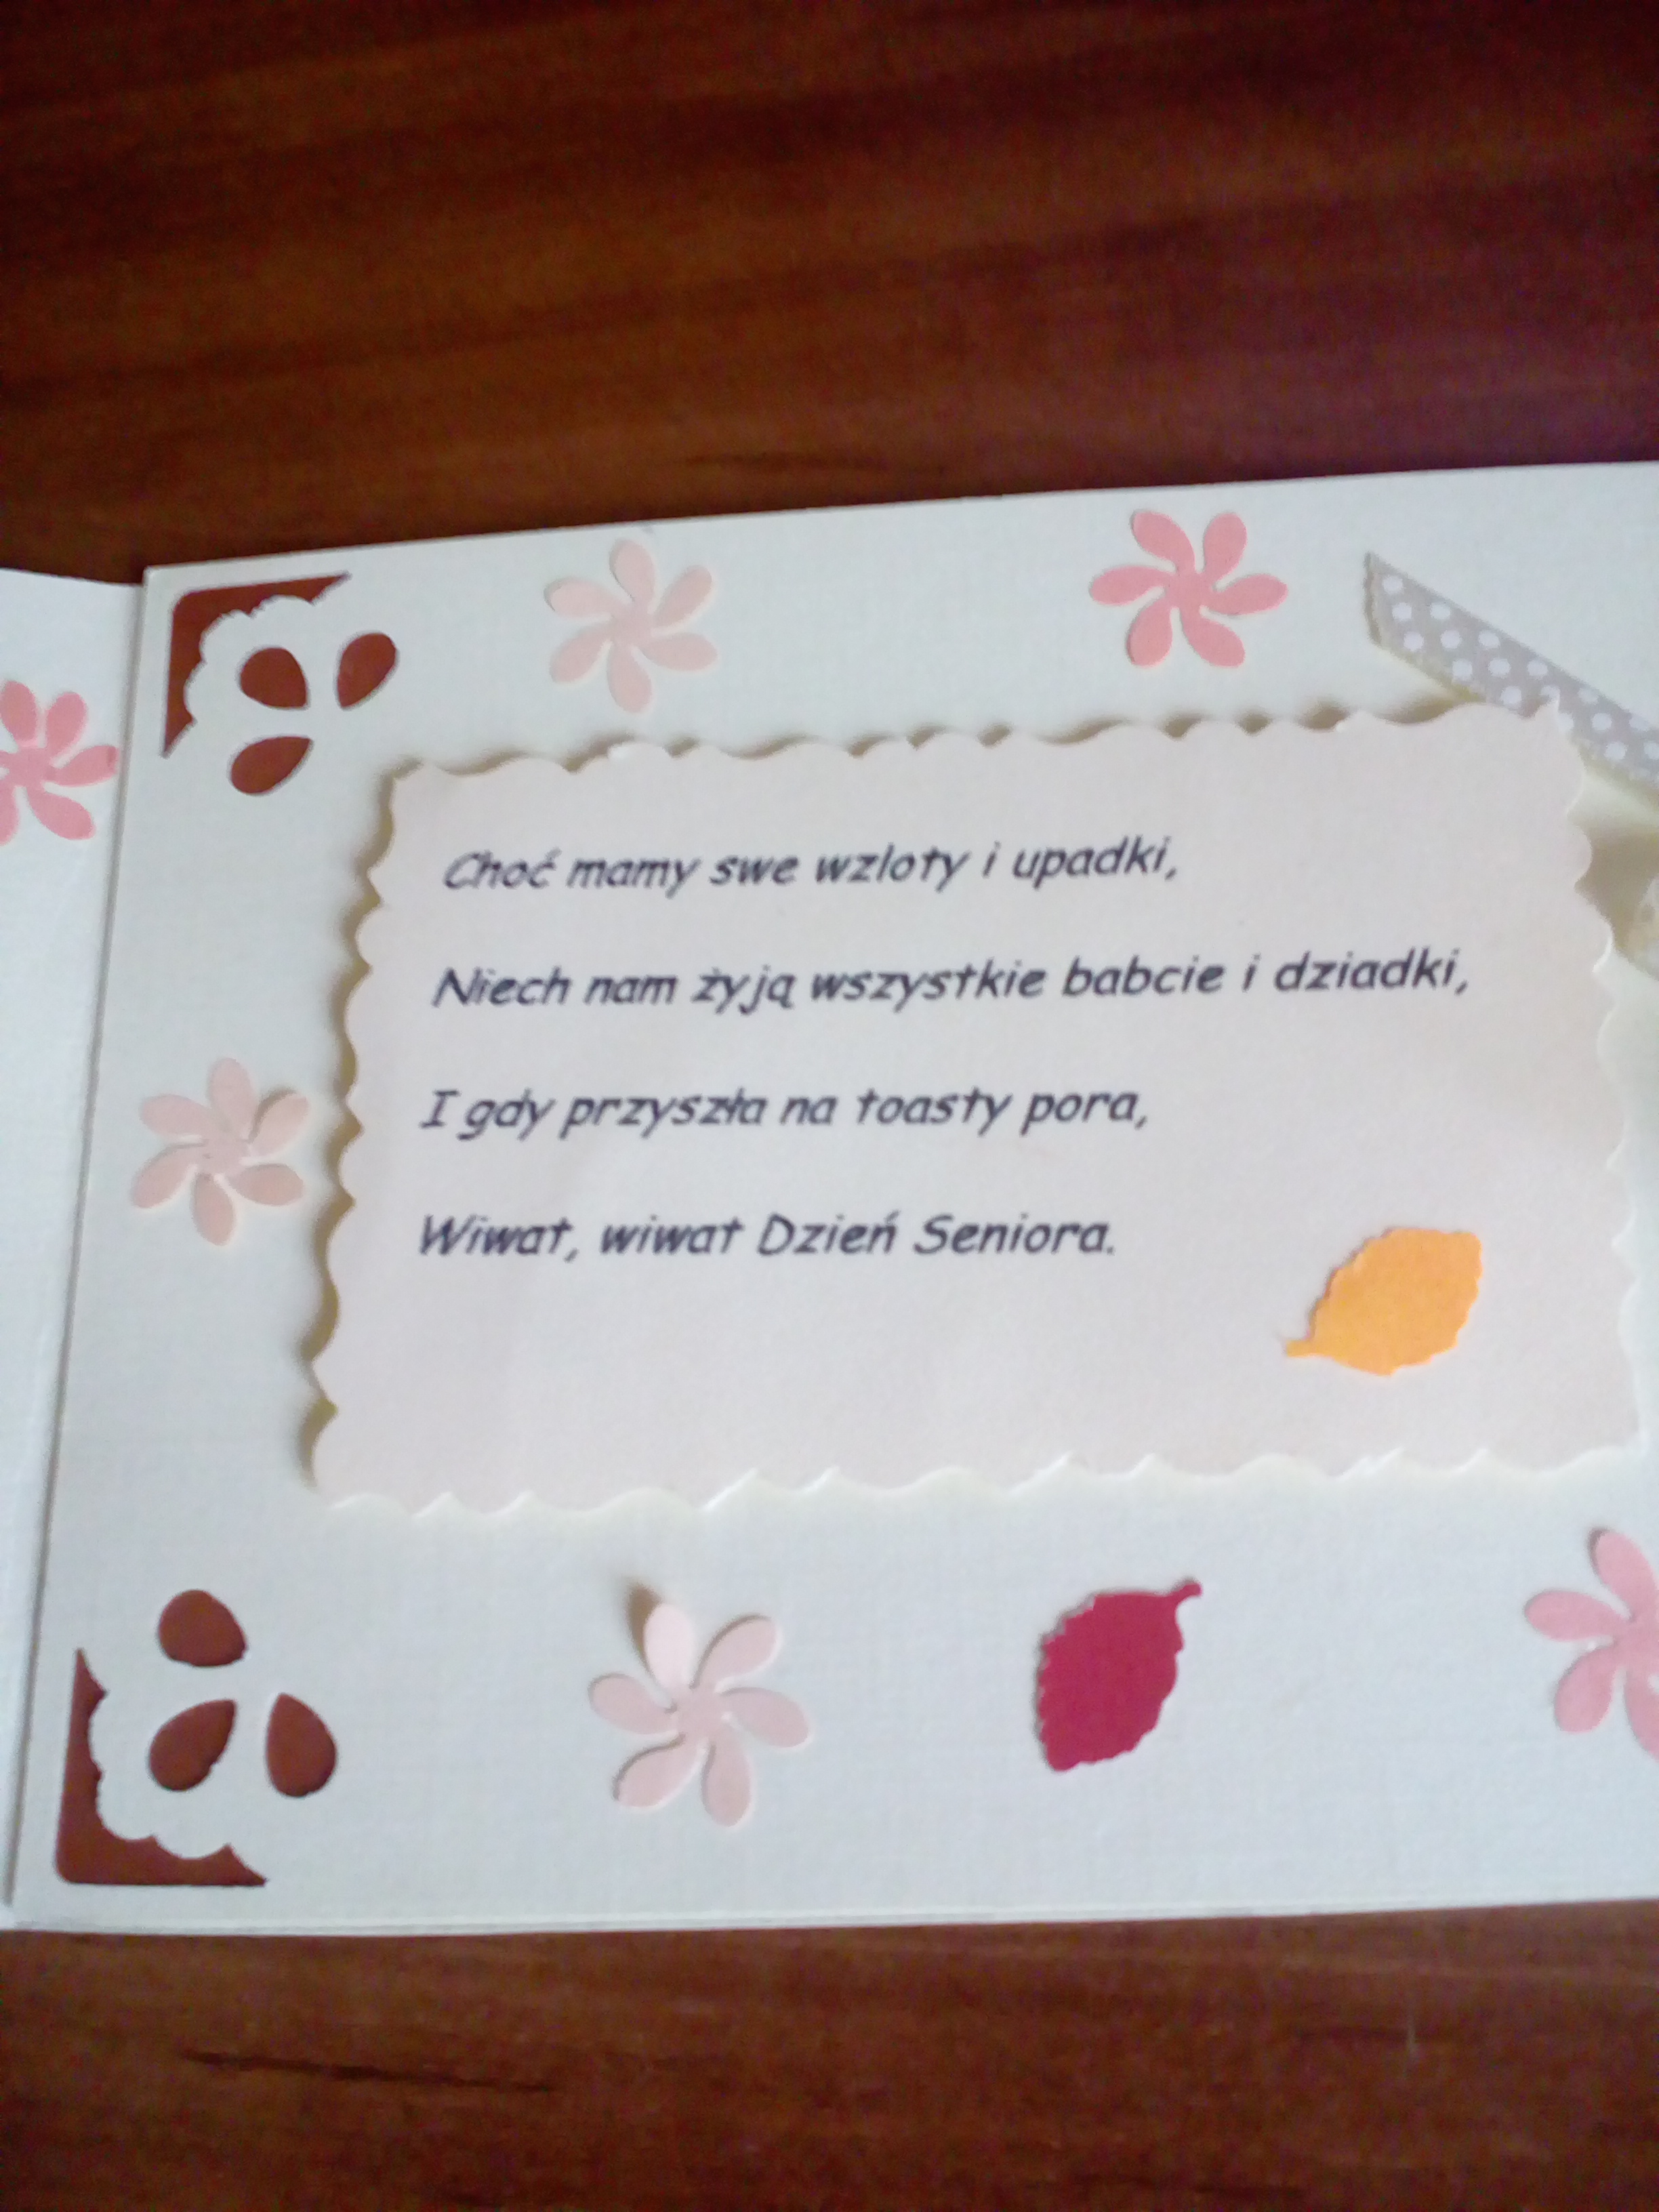 Choć mamy swe wzloty i upadki,
Niech nam żyją wszystkie babcie i dziadki,
I gdy przyszła na toasty pora,
Wiwat, wiwat Dzień Seniora.